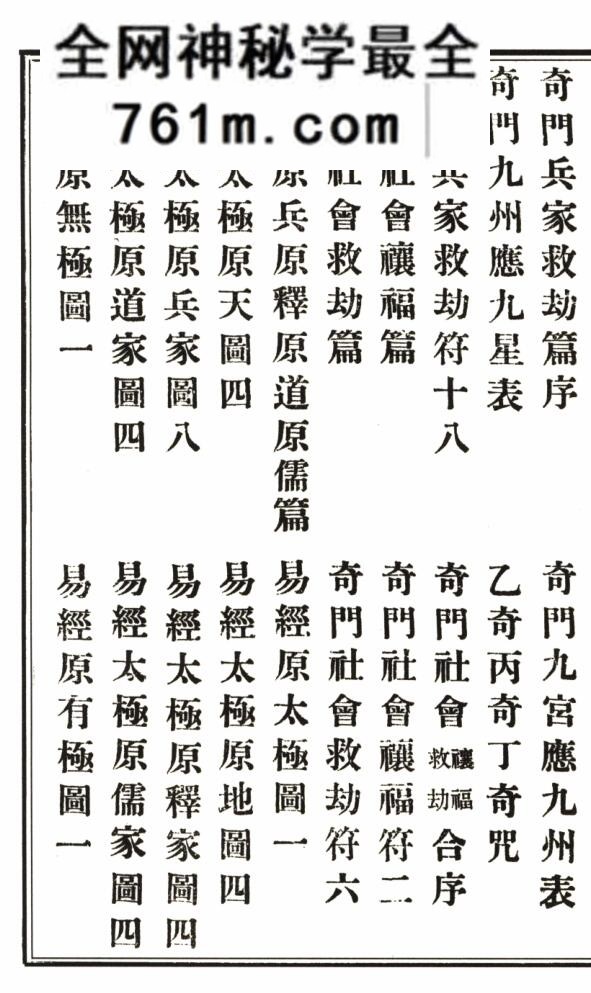 全网神秘学最全
761m.com
奇門兵家救劫篇序
奇門九宮應九州表
奇門九州應九星表
乙奇丙奇丁奇咒
兵家救劫符十八
奇門社會禳福救劫合序
社會禳福篇
奇門社會禳福符二
社會救劫篇
奇門社會救劫符六
原兵原釋原道原儒篇
易經原太極圖一
太極原天圖四
易經太極原地圖四
太極原兵家圖八
易經太極原釋家圖四
太極原道家圖四
易經太極原儒家圖四
原無極圖一
易經原有極圖一